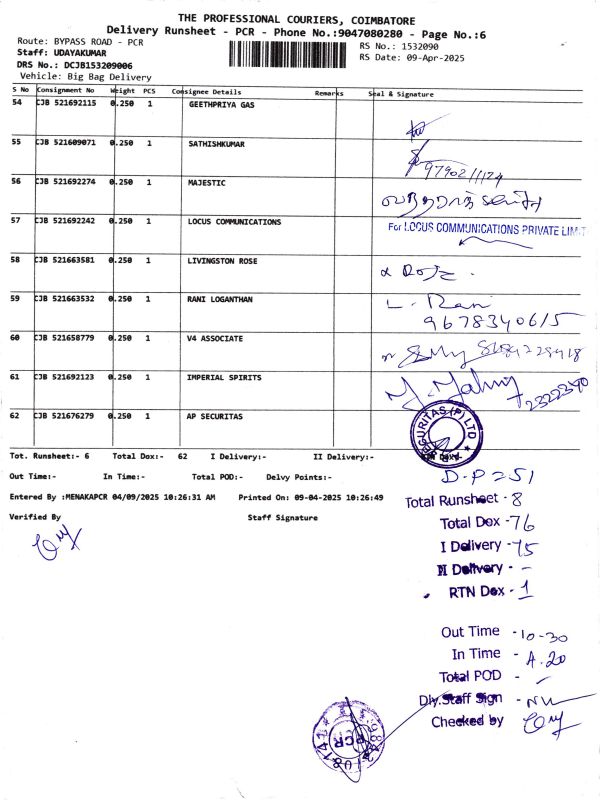 THE PROFESSIONAL COURIERS, COIMBATORE
Delivery Runsheet - PCR - Phone No.:9047080280 - Page No.:6
Route: BYPASS ROAD - PCR
RS No.: 1532090
Staff: UDAYAKUMAR
RS Date: 09-Apr-2025
DRS No.: DCJB153209006
Vehicle: Big Bag Delivery
S No Consignment No Weight PCS Consignee Details Remarks Seal & Signature
54 CJB 521692115 0.250 1 GEETHPRIYA GAS
55 CJB 521609071 0.250 1 SATHISHKUMAR
9790211174
56 CJB 521692274 0.250 1 MAJESTIC
57 CJB 521692242 0.250 1 LOCUS COMMUNICATIONS For LOCUS COMMUNICATIONS PRIVATE LIMIT
58 CJB 521663581 0.250 1 LIVINGSTON ROSE
59 CJB 521663532 0.250 1 RANI LOGANTHAN L. Rani
9678340615
60 CJB 521658779 0.250 1 V4 ASSOCIATE
61 CJB 521692123 0.250 1 IMPERIAL SPIRITS
62 CJB 521676279 0.250 1 AP SECURITAS
SECURITAS (P) LTD
Tot. Runsheet:- 6 Total Dox:- 62 I Delivery:- II Delivery:-
D.P=251
Out Time:- In Time:- Total POD:- Delvy Points:-
Entered By :MENAKAPCR 04/09/2025 10:26:31 AM Printed On: 09-04-2025 10:26:49
Total Runsheet - 8
Verified By Staff Signature
Total Dox - 76
I Delivery - 75
II Delivery - -
RTN Dox - 1
Out Time - 10-30
In Time - A.20
Total POD -
Dly.Staff Sign -
Checked by
PCR